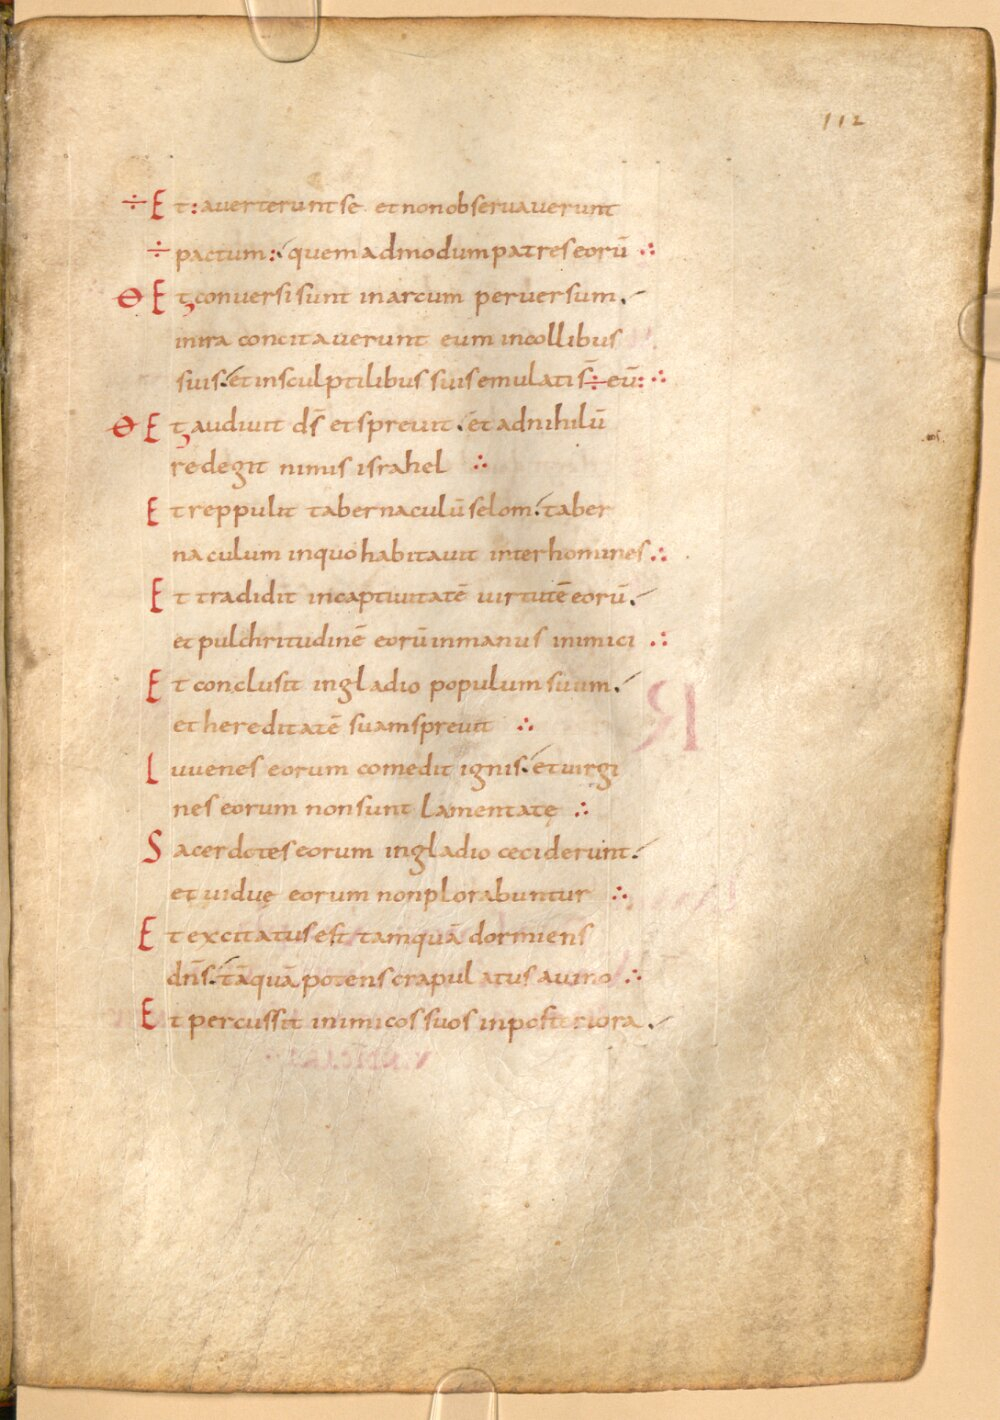 112
÷ Et: averterunt se et non observaverunt
÷ pactum: quemadmodum patres eorū ∴
Et conversi sunt in arcum perversum.
in ira concitaverunt eum in collibus
suis. et in sculptilibus suis emulati s̄ ÷ eū: ∴
Et audivit d̄s et sprevit. et ad nihilū
redegit nimis israhel ∴
Et reppulit tabernaculū selom. taber
naculum in quo habitavit inter homines ∴
Et tradidit in captivitatē uirtutē eorū.
et pulchritudinē eorū in manus inimici ∴
Et conclusit in gladio populum suum.
et hereditatē suam sprevit ∴
Iuvenes eorum comedit ignis. et virgi
nes eorum non sunt lamentatę ∴
Sacerdotes eorum in gladio ceciderunt.
et viduę eorum non plorabuntur ∴
Et excitatus est tamquā dormiens
dn̄s. tāquā potens crapulatus a vino ∴
Et percussit inimicos suos in posteriora.